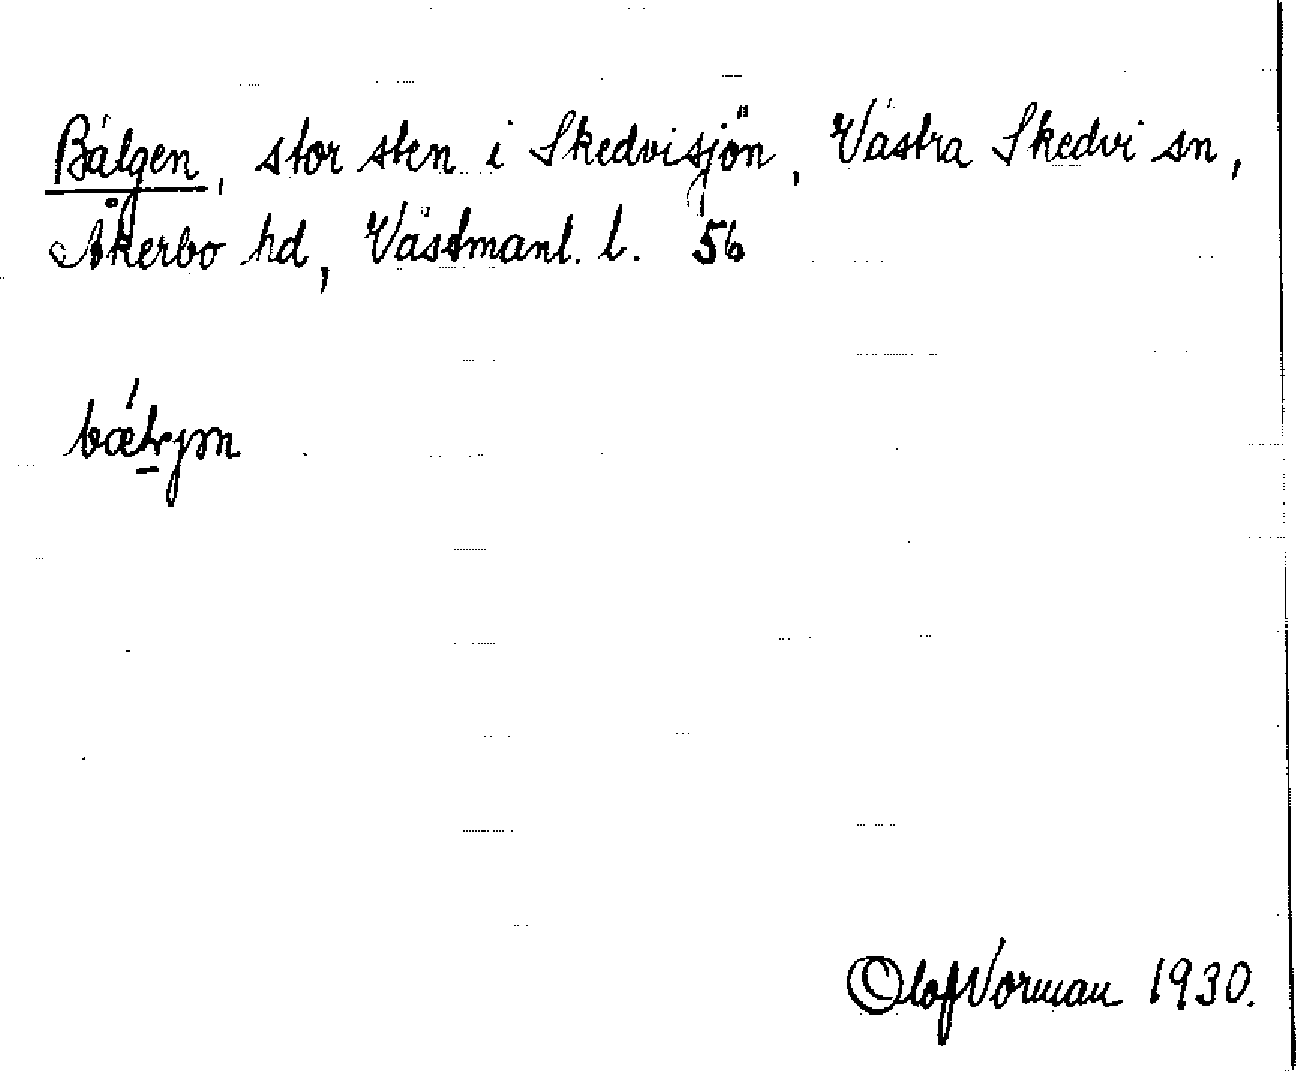 Bälgen, stor sten i Skedvisjön, Västra Skedvi sn,
Åkerbo hd, Västmanl. l. 56
Olof Norman 1930.